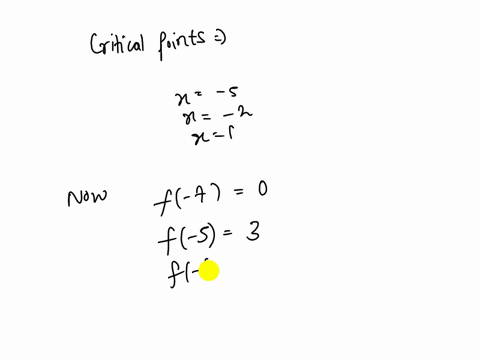 Critical points =>
x = -5
x = -2
x = 1
Now f(-7) = 0
f(-5) = 3
f(-